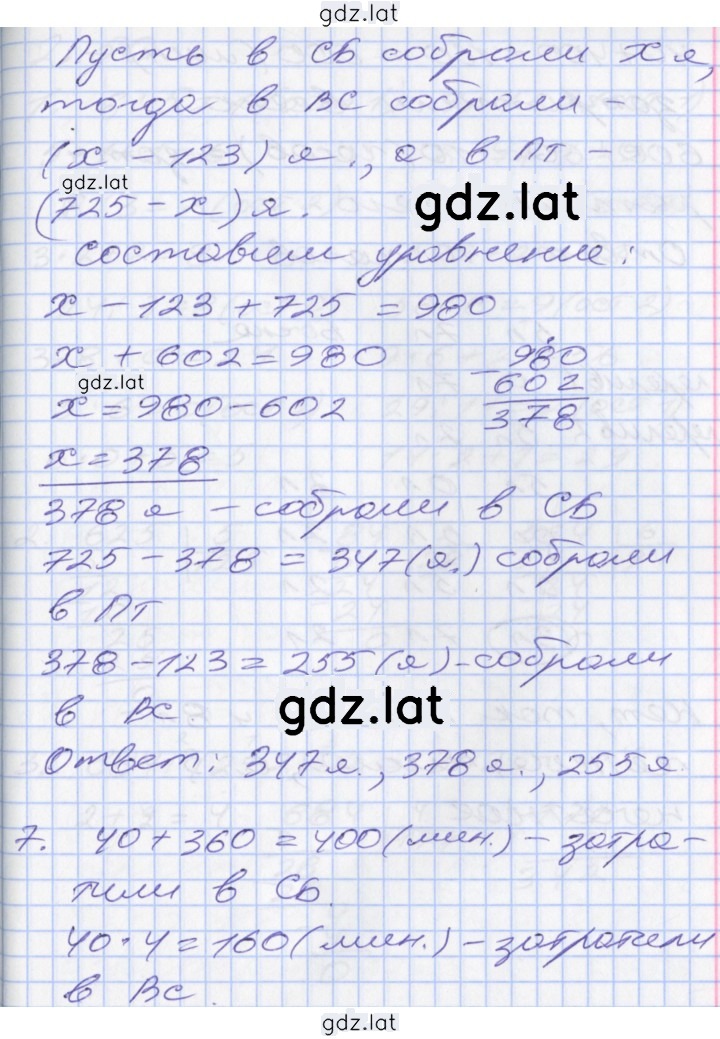 gdz.lat
Пусть в СБ собрали х я,
тогда в ВС собрали –
(х – 123) я., а в ПТ –
gdz.lat
(725 – х) я.
gdz.lat
Составим уравнение:
х – 123 + 725 = 980
х + 602 = 980
980
– 602
378
gdz.lat
х = 980 – 602
х = 378
378 я – собрали в СБ
725 – 378 = 347 (я.) собрали
в ПТ
378 – 123 = 255 (я) – собрали
в ВС.
gdz.lat
Ответ: 347 я., 378 я., 255 я.
7. 40 + 360 = 400 (мин.) – затра-
тили в СБ.
40 · 4 = 160 (мин.) – затратили
в ВС.
gdz.lat